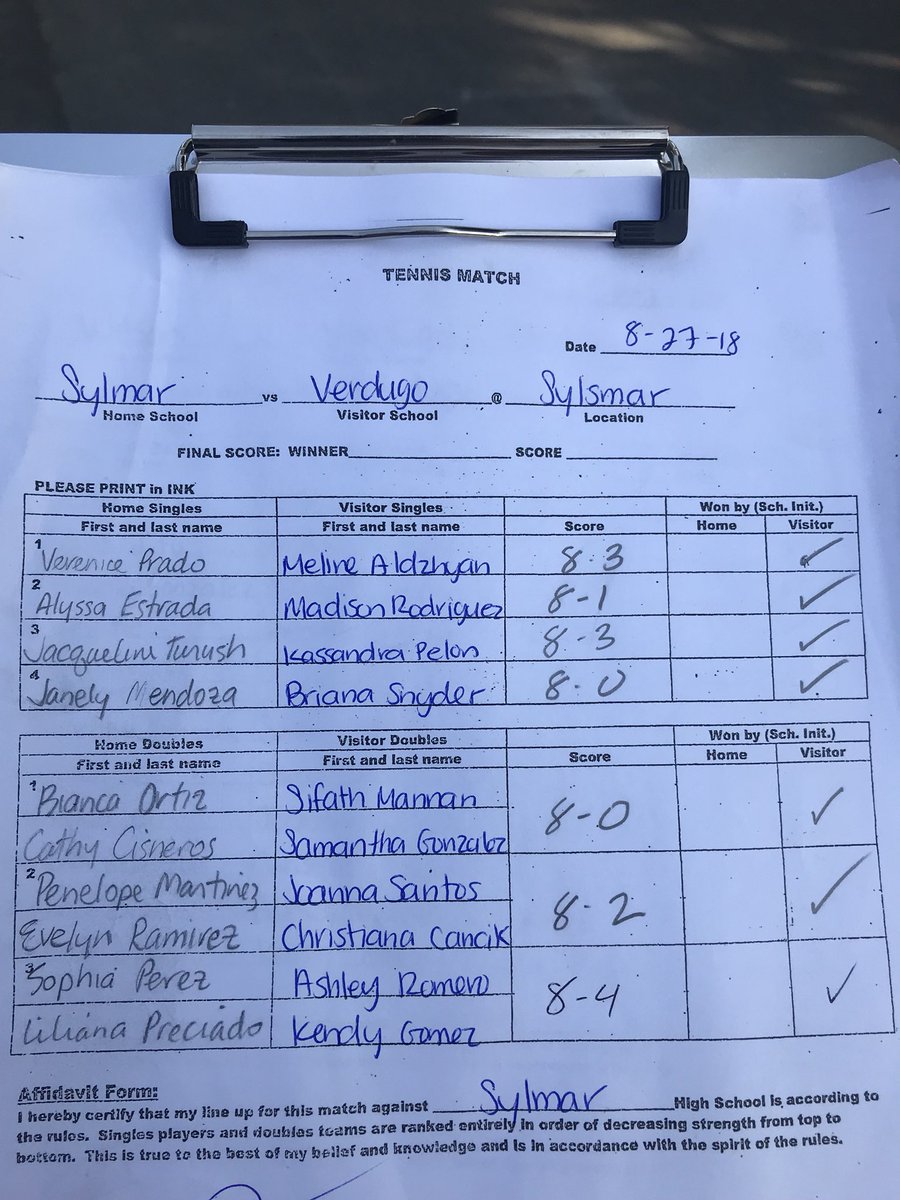 TENNIS MATCH
Date 8-27-18
Sylmar vs Verdugo @ Sylsmar
Home School Visitor School Location
FINAL SCORE: WINNER SCORE
PLEASE PRINT in INK
Home Singles Visitor Singles Won by (Sch. Init.)
First and last name First and last name Score Home Visitor
1 Verenice Prado Meline Aldzhyan 8-3 ✓
2 Alyssa Estrada Madison Rodriguez 8-1 ✓
3 Jacquelini Kassandra Pelon 8-3 ✓
4 Janely Mendoza Briana Snyder 8-0 ✓
Home Doubles Visitor Doubles Won by (Sch. Init.)
First and last name First and last name Score Home Visitor
1 Bianca Ortiz Sifath Mannan 8-0 ✓
Cathy Cisneros Samantha Gonzalez
2 Penelope Martinez Joanna Santos 8-2 ✓
Evelyn Ramirez Christiana Cancik
3 Sophia Perez Ashley Romero 8-4 ✓
Liliana Preciado Kendy Gomez
Affidavit Form:
I hereby certify that my line up for this match against Sylmar High School is according to
the rules. Singles players and doubles teams are ranked entirely in order of decreasing strength from top to
bottom. This is true to the best of my belief and knowledge and is in accordance with the spirit of the rules.